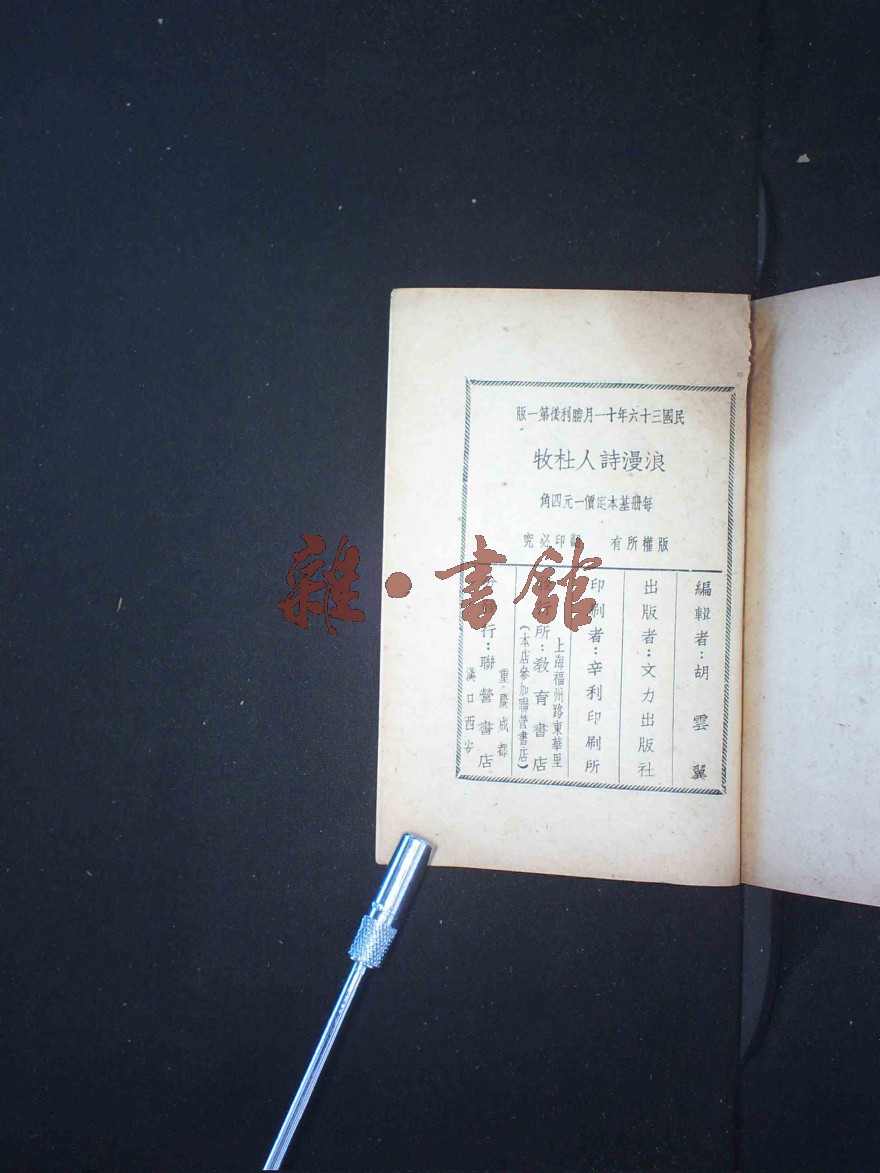 民國三十六年十一月勝利後第一版
浪漫詩人杜牧
每冊基本定價一元四角
版權所有 翻印必究
編輯者：胡雲翼
出版者：文力出版社
印刷者：辛利印刷所
上海福州路東華里
所：教育書店
（本店參加聯營書店）
重慶成都
行：聯營書店
漢口西安
雜·書館